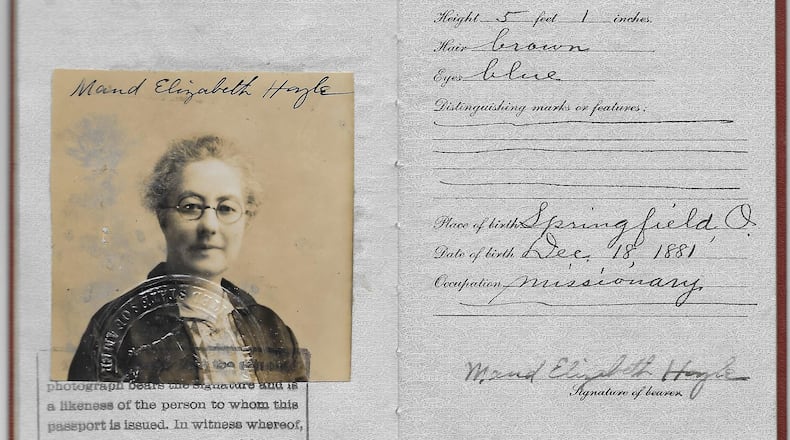 Maud Elizabeth Hoyle
photograph bears the signature and is
a likeness of the person to whom this
passport is issued. In witness whereof,
Height 5 feet 1 inches.
Hair brown
Eyes blue
Distinguishing marks or features:
Place of birth Springfield, O.
Date of birth Dec. 18, 1881
Occupation missionary
Maud Elizabeth Hoyle
Signature of bearer.